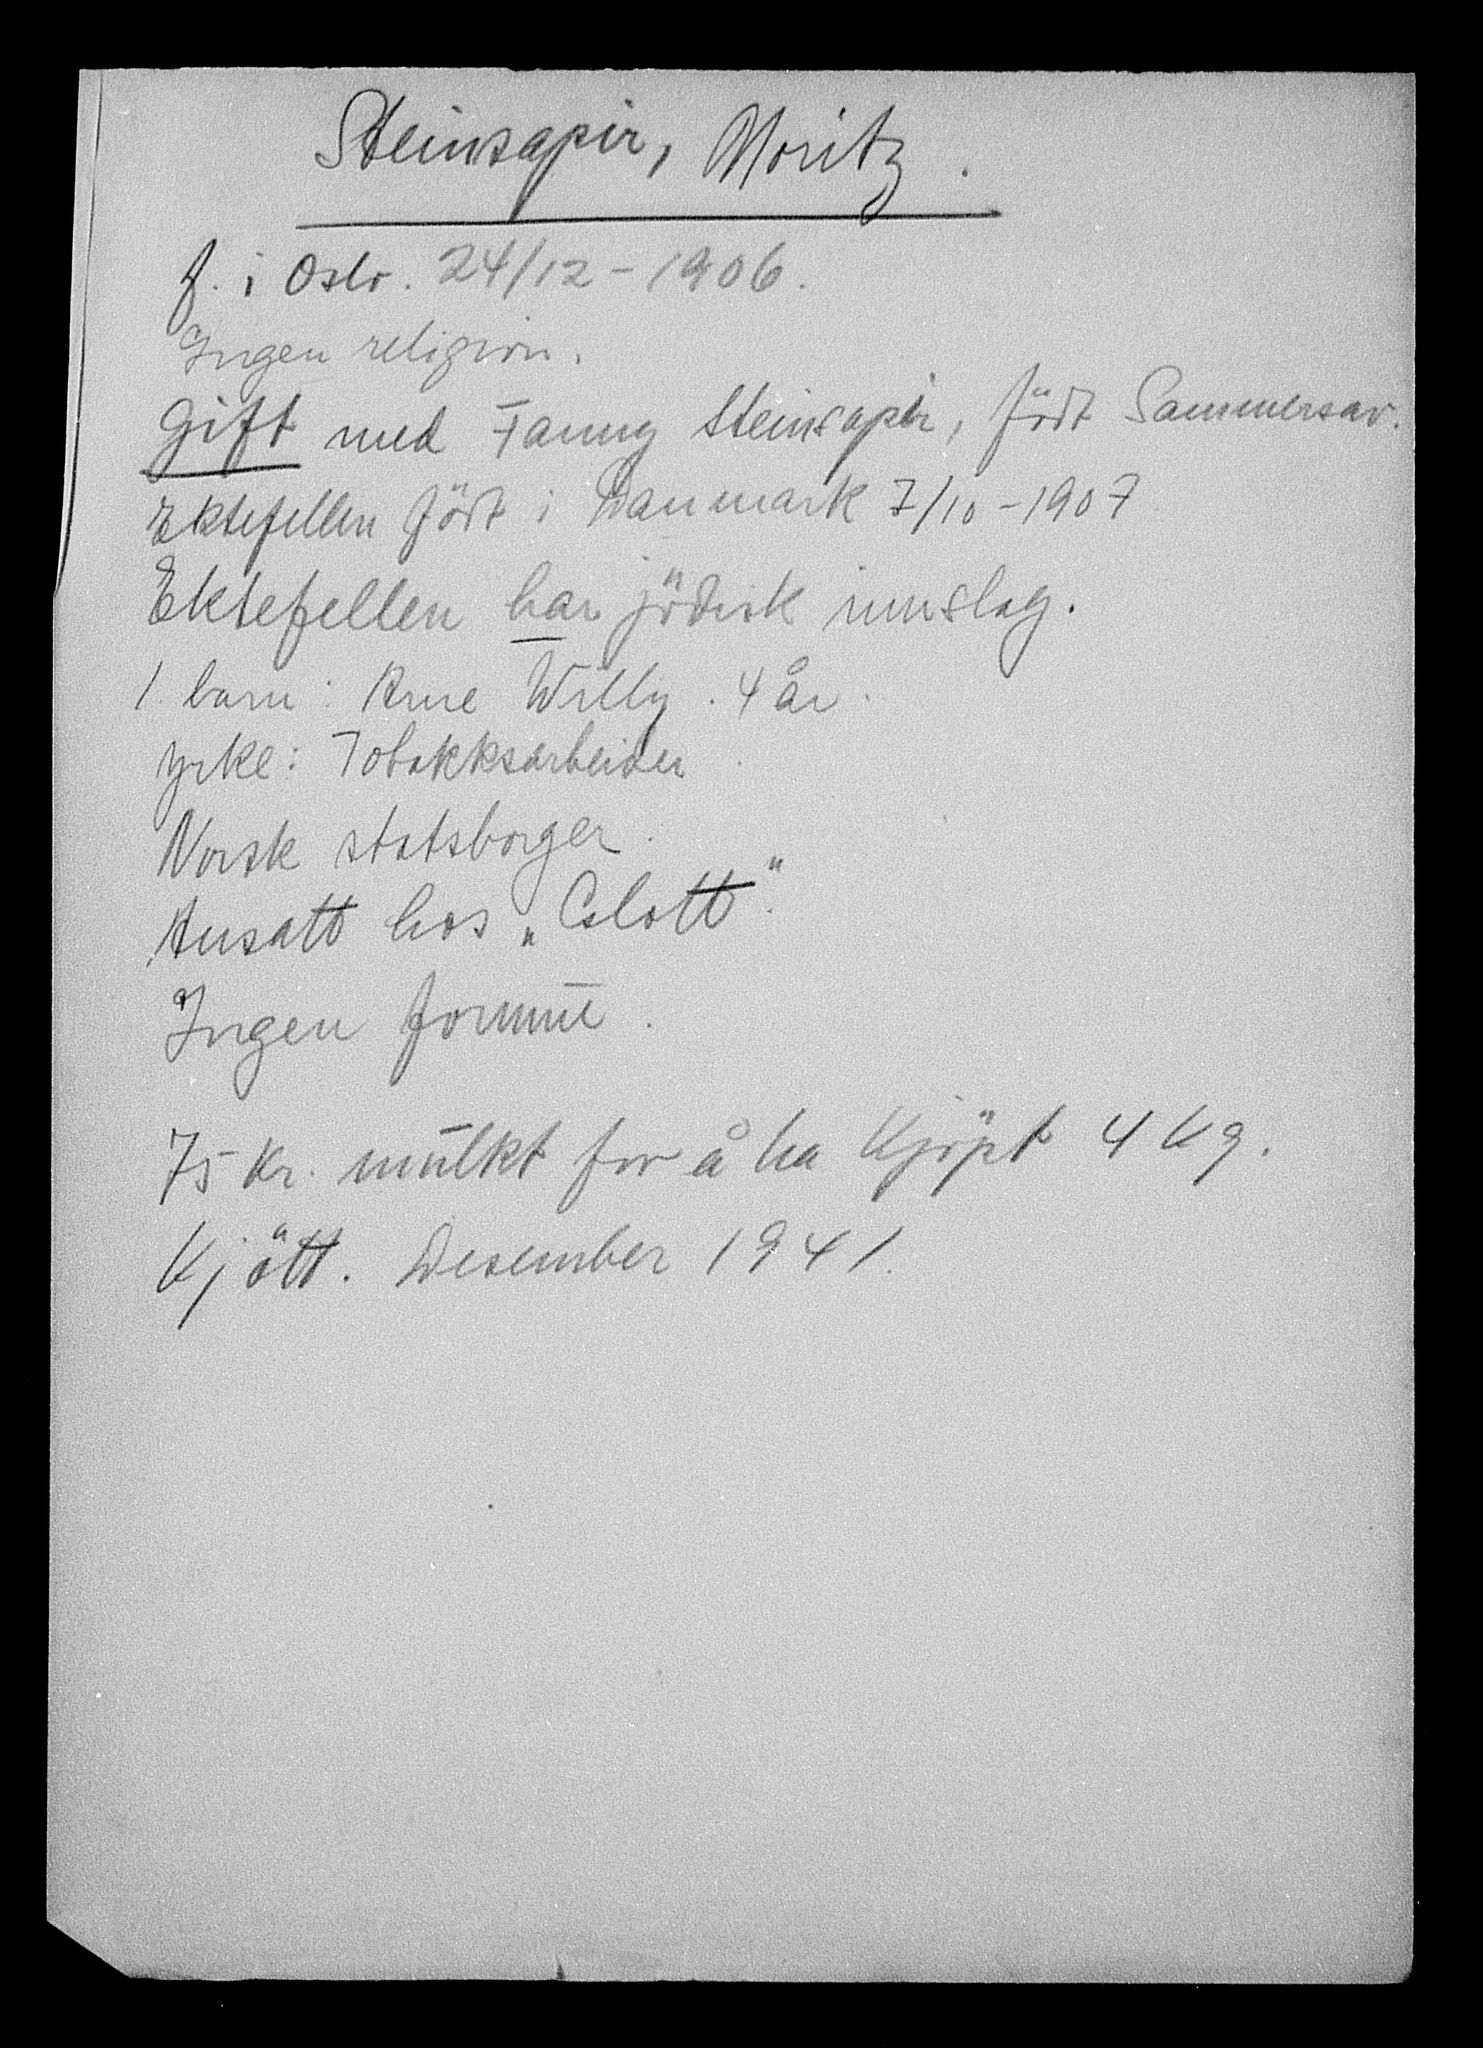 Steinsapir, Moritz.
f. i Oslo. 24/12-1906.
Ingen religion.
Gift med Fanny Steinsapir, födt Sammersav.
Ektefellen födt i Danmark 7/10-1907
Ektefellen har jödisk innslag.
1 barn: Arne Willy. 4 år.
Yrke: Tobakksarbeider
Norsk statsborger.
Ansatt hos „Colott".
Ingen formue.
75 kr. mulkt for å ha kjöpt 4 kg.
Kjött. Desember 1941.